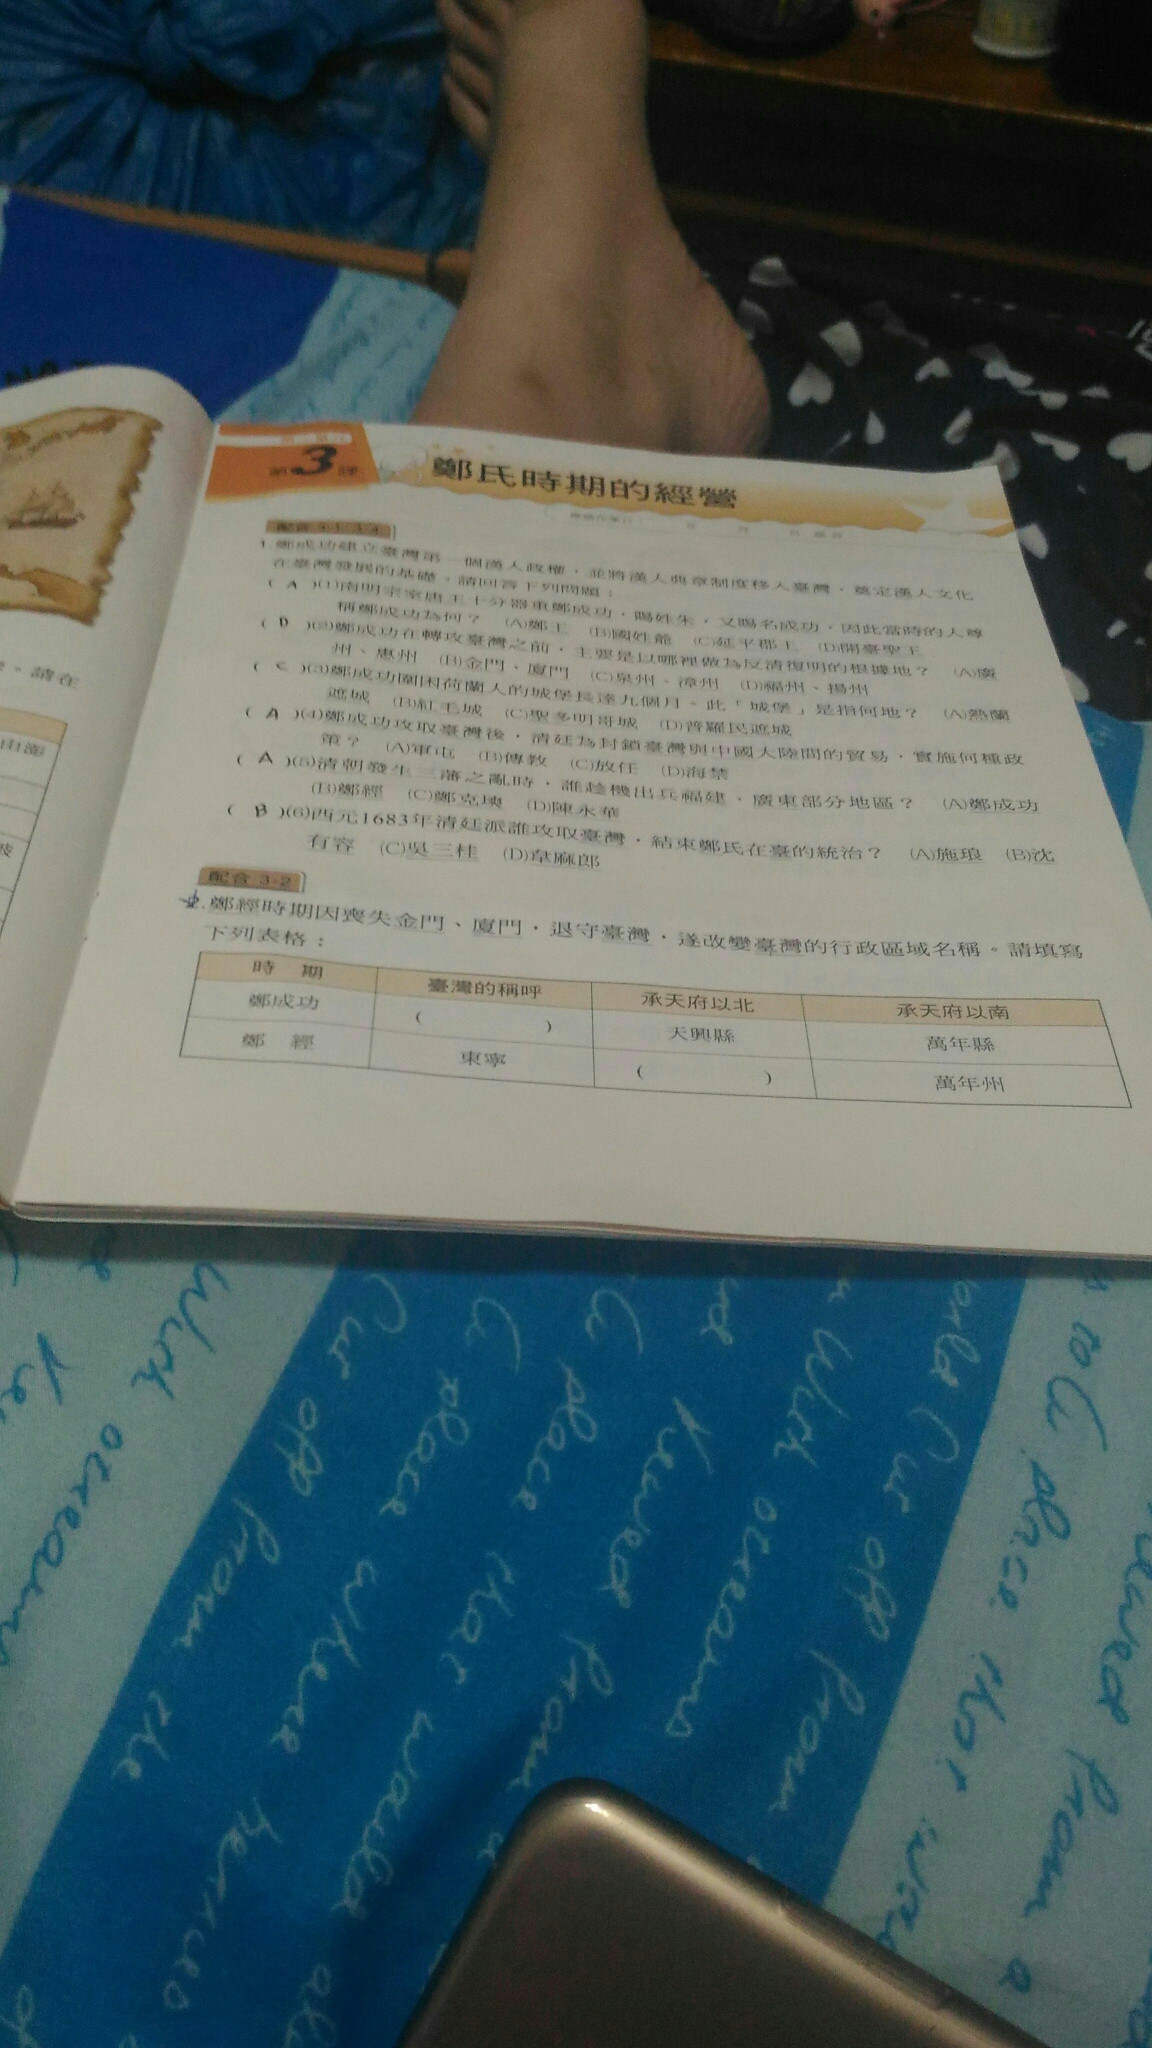 第3課
鄭氏時期的經營
1.鄭成功建立臺灣第一個漢人政權，並將漢人典章制度移入臺灣，奠定漢人文化
在臺灣發展的基礎。請回答下列問題：
( A )(1)南明宗室唐王十分器重鄭成功，賜姓朱，又賜名成功，因此當時的人尊
稱鄭成功為何？ (A)鄭王 (B)國姓爺 (C)延平郡王 (D)開臺聖王
( D )(2)鄭成功在轉攻臺灣之前，主要是以哪裡做為反清復明的根據地？ (A)廣
州、惠州 (B)金門、廈門 (C)泉州、漳州 (D)福州、揚州
( C )(3)鄭成功圍困荷蘭人的城堡長達九個月。此「城堡」是指何地？ (A)熱蘭
遮城 (B)紅毛城 (C)聖多明哥城 (D)普羅民遮城
( A )(4)鄭成功攻取臺灣後，清廷為封鎖臺灣與中國大陸間的貿易，實施何種政
策？ (A)軍屯 (B)傳教 (C)放任 (D)海禁
( A )(5)清朝發生三藩之亂時，誰趁機出兵福建、廣東部分地區？ (A)鄭成功
(B)鄭經 (C)鄭克塽 (D)陳永華
( B )(6)西元1683年清廷派誰攻取臺灣，結束鄭氏在臺的統治？ (A)施琅 (B)沈
有容 (C)吳三桂 (D)韋麻郎
配合 3-2
2.鄭經時期因喪失金門、廈門，退守臺灣，遂改變臺灣的行政區域名稱。請填寫
下列表格：
時 期 臺灣的稱呼 承天府以北 承天府以南
鄭成功 ( ) 天興縣 萬年縣
鄭 經 東寧 ( ) 萬年州